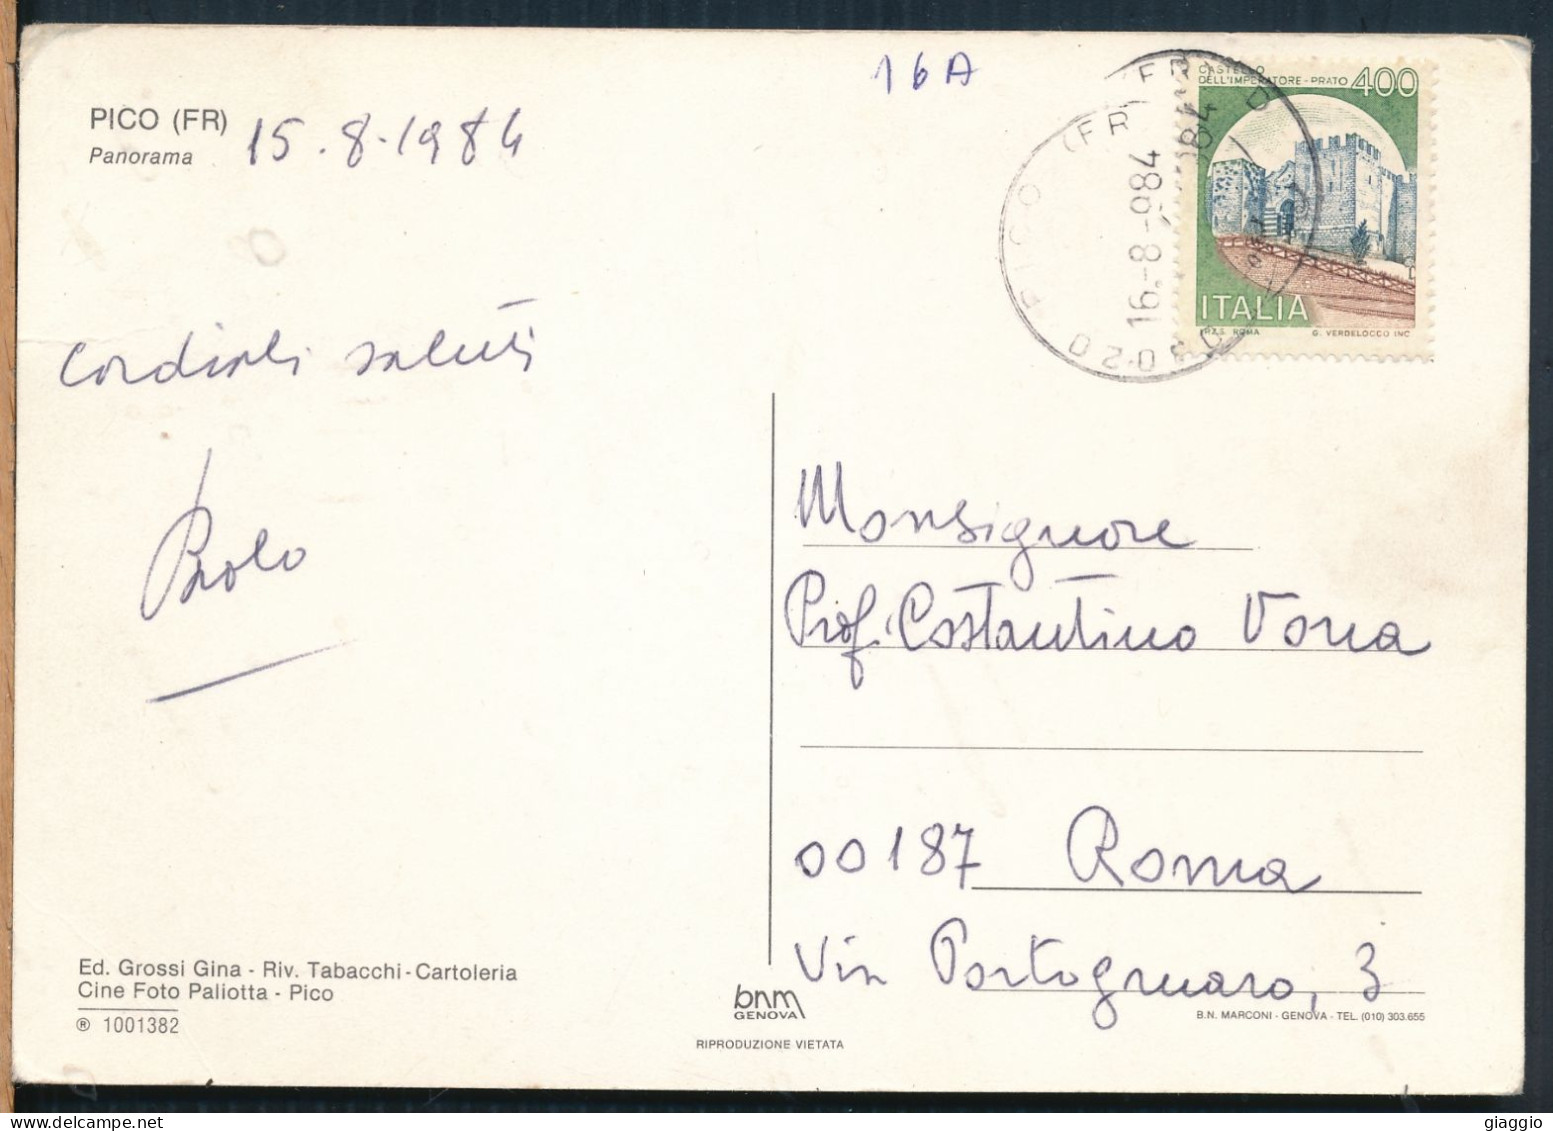 16A
PICO (FR)
Panorama
15.8.1984
CASTELLO
DELL'IMPERATORE-PRATO 400
PICO (FR)
16.-8-984
ITALIA
I.P.Z.S. ROMA G. VERDELOCCO INC.
cordiali saluti
Paolo
Monsignore
Prof. Costantino Vona
00187 Roma
Via Portogruaro, 3
Ed. Grossi Gina - Riv. Tabacchi - Cartoleria
Cine Foto Paliotta - Pico
® 1001382
bnm
GENOVA
B.N. MARCONI - GENOVA - TEL. (010) 303.655
RIPRODUZIONE VIETATA
giaggio